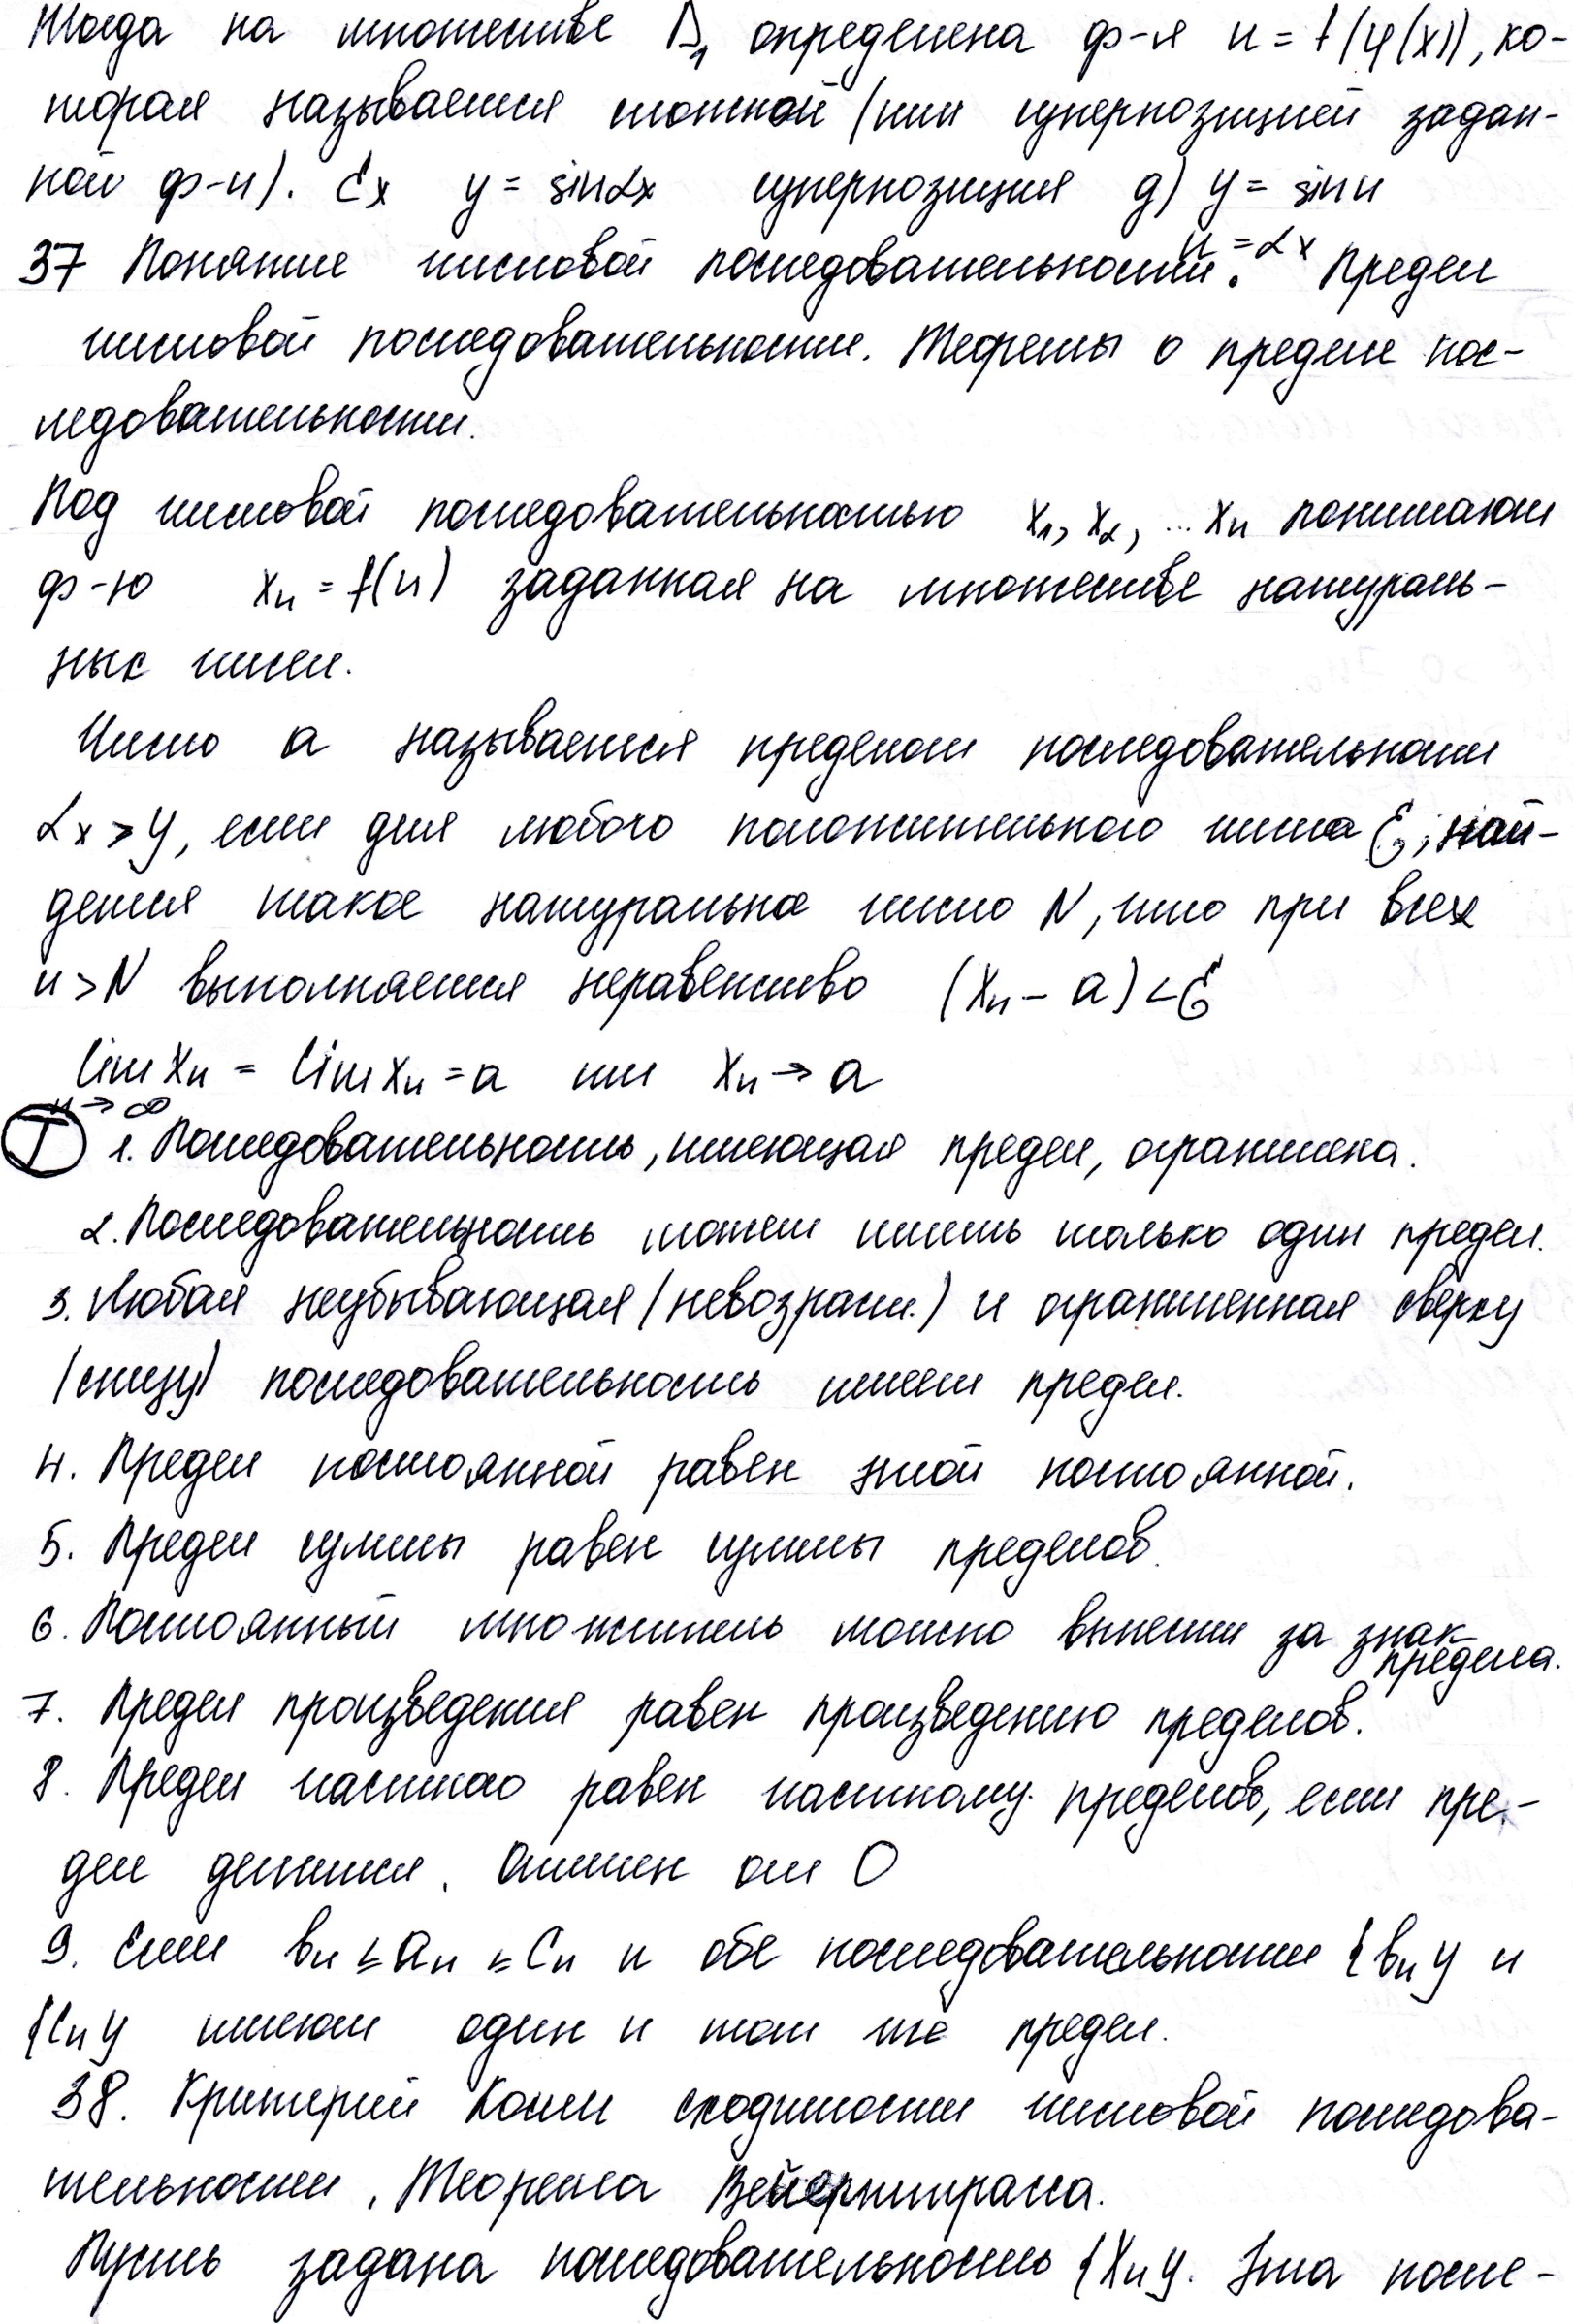 Тогда на множестве D₁ определена ф-я u = f(φ(x)), ко-
торая называется сложной (или суперпозицией задан-
ной ф-и). Ex y = sin2x суперпозиция д) y = sin u
u = 2x
37 Понятие числовой последовательности. Предел
числовой последовательности. Теоремы о пределе пос-
ледовательности.
Под числовой последовательностью x₁, x₂, ... xₙ понимают
ф-ю xₙ = f(n) заданная на множестве натураль-
ных чисел.
Число a называется пределом последовательности
{x₂}, если для любого положительного числа Ɛ, най-
дется такое натуральное число N, что при всех
n > N выполняется неравенство (xₙ - a) < Ɛ
lim xₙ = lim xₙ = a или xₙ → a
n → ∞
Ⓣ 1. Последовательность, имеющая предел, ограничена.
2. Последовательность может иметь только один предел.
3. Любая неубывающая (невозраст.) и ограниченная сверху
(снизу) последовательность имеет предел.
4. Предел постоянной равен этой постоянной.
5. Предел суммы равен суммы пределов.
6. Постоянный множитель можно вынести за знак
предела.
7. Предел произведения равен произведению пределов.
8. Предел частного равен частному пределов, если пре-
дел делителя. отличен от 0
9. Если bₙ ≤ aₙ ≤ cₙ и обе последовательности {bₙ} и
{cₙ} имеют один и тот же предел.
38. Критерий Коши сходимости числовой последова-
тельности. Теорема Вейерштрасса.
Пусть задана последовательность {xₙ}. Эта после-